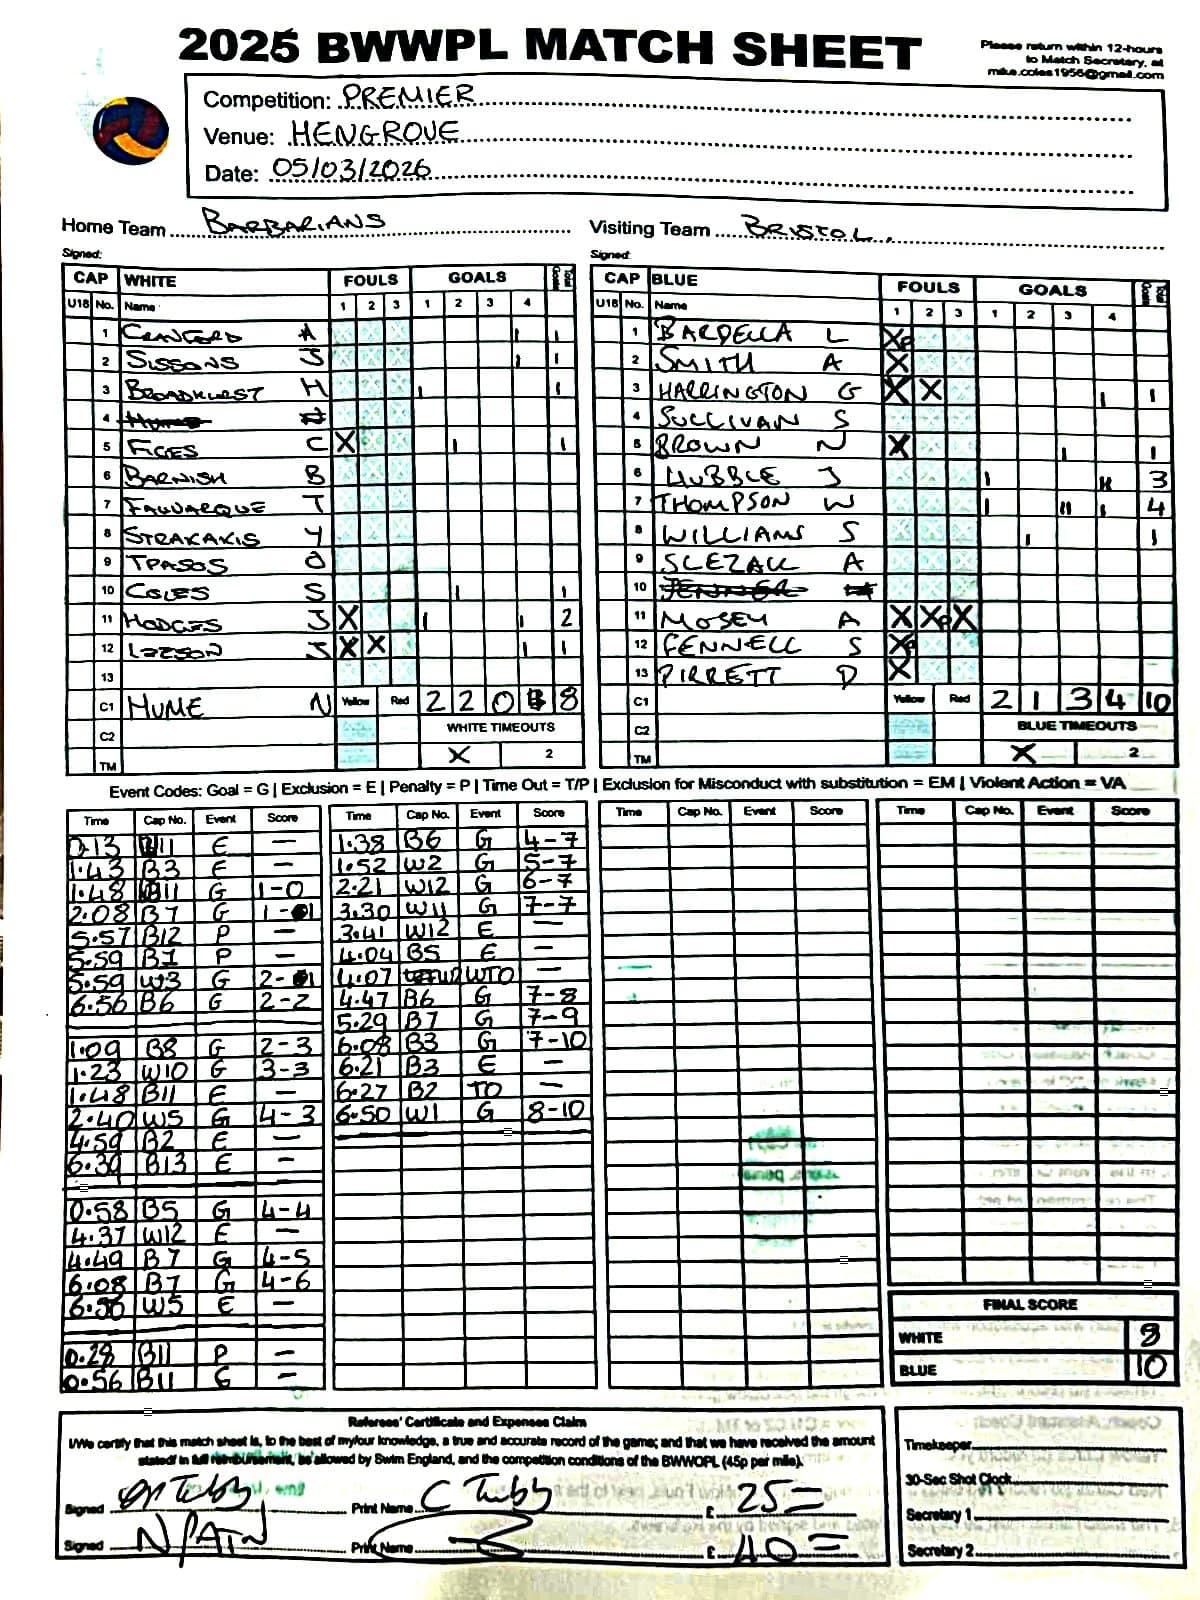 2025 BWWPL MATCH SHEET
Please return within 12-hours
to Match Secretary, at
mike.coles1956@gmail.com
Competition: PREMIER
Venue: HENGROVE
Date: 05/03/2026
Home Team BARBARIANS
Visiting Team BRISTOL.
Signed:
Signed:
CAP WHITE FOULS GOALS Total Goals
U18 No. Name 1 2 3 1 2 3 4
1 CRANFORD A I I
2 SISSONS J I I
3 BROADHURST H I I
4
5 FIGES C X I I
6 BARNISH B
7 FAUDARQUE T
8 STRAKAKIS Y
9 TPASOS O
10 COLES S I I
11 HODGES J X I I 2
12 LEESON J X X I I
13
C1 HUME N Yellow Red 2 2 0 8
C2 WHITE TIMEOUTS
TM X 2
CAP BLUE FOULS GOALS Total Goals
U18 No. Name 1 2 3 1 2 3 4
1 BARDELLA L XP
2 SMITH A X
3 HARRINGTON G X X I I
4 SULLIVAN S
5 BROWN N X I I
6 HUBBLE J I II 3
7 THOMPSON W I II I 4
8 WILLIAMS S I I
9 SLEZAK A
10 JENNER
11 MOSEY A X XP X
12 FENNELL S XP
13 PIRRETT D X
C1 Yellow Red 2 1 3 4 10
C2 BLUE TIMEOUTS
TM X 2
Event Codes: Goal = G | Exclusion = E | Penalty = P | Time Out = T/P | Exclusion for Misconduct with substitution = EM | Violent Action = VA
Time Cap No. Event Score
0.13 B11 E —
1.43 B3 E —
1.48 11 G 1-0
2.08 B7 G 1-1
5.57 B12 P —
5.59 B1 P —
5.59 W3 G 2-1
6.56 B6 G 2-2
1.09 B8 G 2-3
1.23 W10 G 3-3
1.48 B11 E —
2.40 W5 G 4-3
4.59 B2 E —
6.39 B13 E —
0.58 B5 G 4-4
4.37 W12 E —
4.49 B7 G 4-5
6.08 B7 G 4-6
W5 E —
0.28 B11 P —
0.56 B11 G —
Time Cap No. Event Score
1.38 B6 G 4-7
1.52 W2 G 5-7
2.21 W12 G 6-7
3.30 W11 G 7-7
3.41 W12 E —
4.04 B5 E —
4.07 WTO —
4.47 B6 G 7-8
5.29 B7 G 7-9
6.08 B3 G 7-10
6.21 B3 E —
6.27 B2 TO —
6.50 W1 G 8-10
Time Cap No. Event Score
Time Cap No. Event Score
FINAL SCORE
WHITE 8
BLUE 10
Referees' Certificate and Expenses Claim
I/We certify that this match sheet is, to the best of my/our knowledge, a true and accurate record of the game; and that we have received the amount
stated/ in full reimbursement, as allowed by Swim England, and the competition conditions of the BWWOPL (45p per mile).
Signed Print Name C Tubby £ 25=
Signed N PAIN Print Name £ 40=
Timekeeper
30-Sec Shot Clock
Secretary 1
Secretary 2